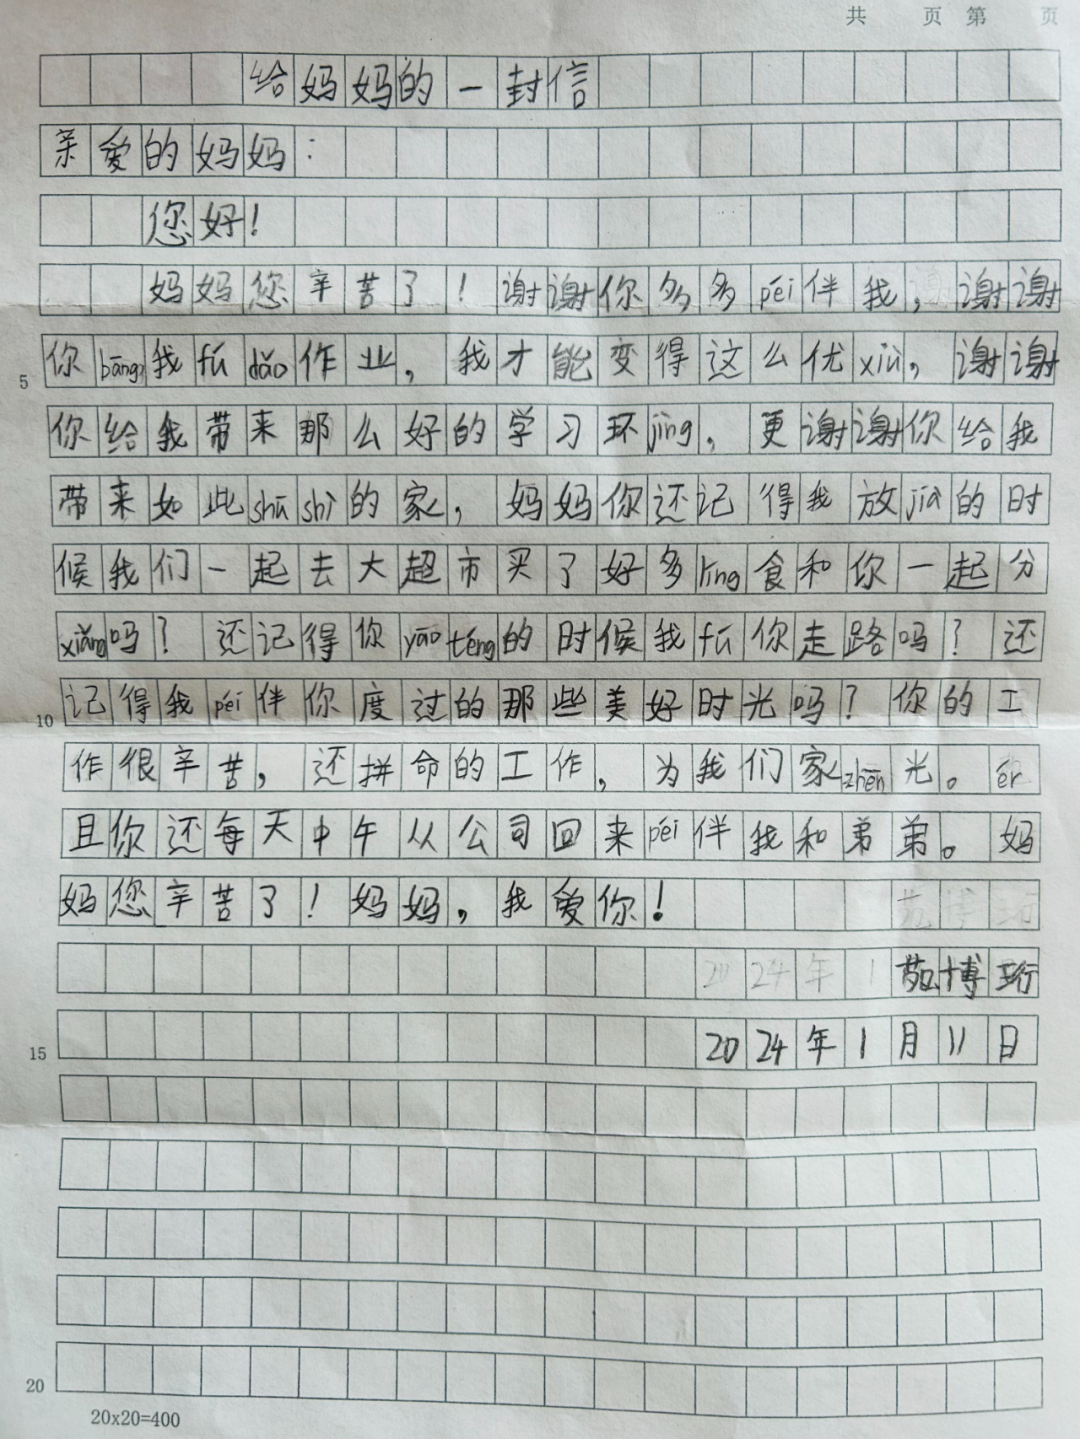 共 页 第 页
给妈妈的一封信
亲爱的妈妈:
您好!
妈妈您辛苦了!谢谢你多多péi伴我,谢谢
5 你bāng我fú dǎo作业,我才能变得这么优xiù,谢谢
你给我带来那么好的学习环jìng,更谢谢你给我
带来如此shū shì的家,妈妈你还记得我放jià的时
候我们一起去大超市买了好多líng食和你一起分
xiǎng吗?还记得你yāo téng的时候我fú你走路吗?还
10 记得我péi伴你度过的那些美好时光吗?你的工
作很辛苦,还拼命的工作,为我们家zhēn光。ér
且你还每天中午从公司回来péi伴我和弟弟。妈
妈您辛苦了!妈妈,我爱你!
博珩
15 2024年1月11日
20
20x20=400